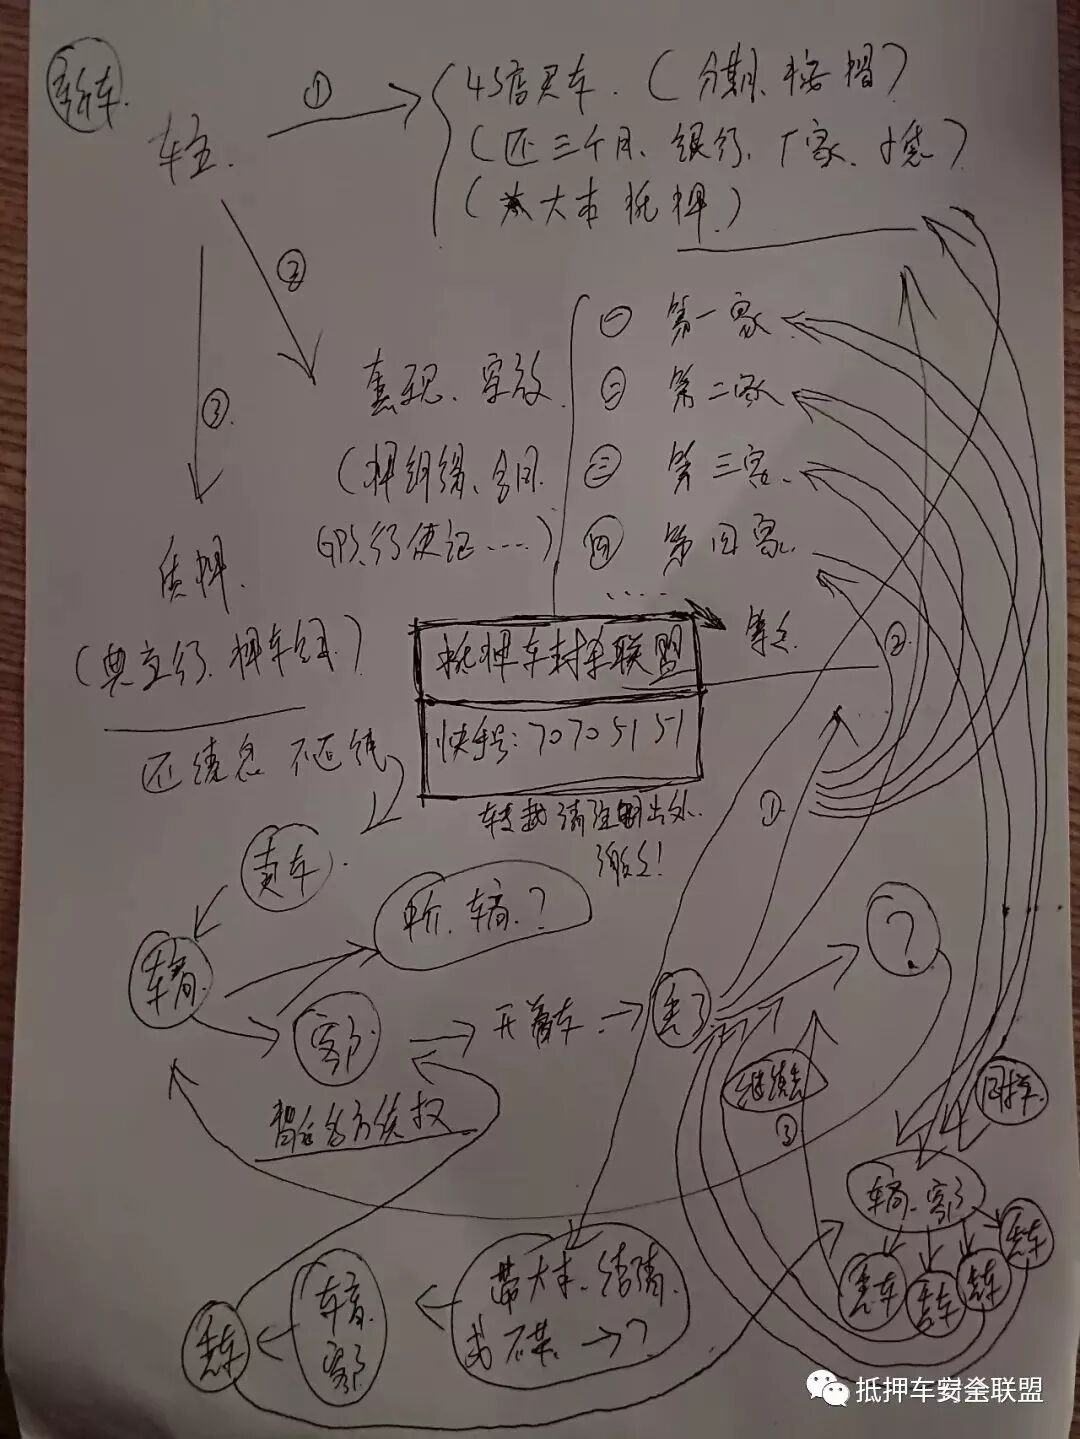 新车
车主
①
4S店买车.(分期、按揭)
(还三个月、银行、厂家、
(大本抵押)
②
③
套现、
① 第一家
② 第二家
③ 第三家
④ 第四家
(押
GPS、行使证……)
……
等等
质押
(典当行、押车
还 息 不还钱
抵押车封车联盟
快手号:70705151
转载请注明出处
谢谢!
卖车
车商
中介、车商?
客户
开着车
丢了
?
①
②
③
继续丢
暂各方债权
同样
车商、客户
丢车
丢车
丢车
丢车
带大本、结清
或不带→?
车商
客户
丢车
抵押车安全联盟